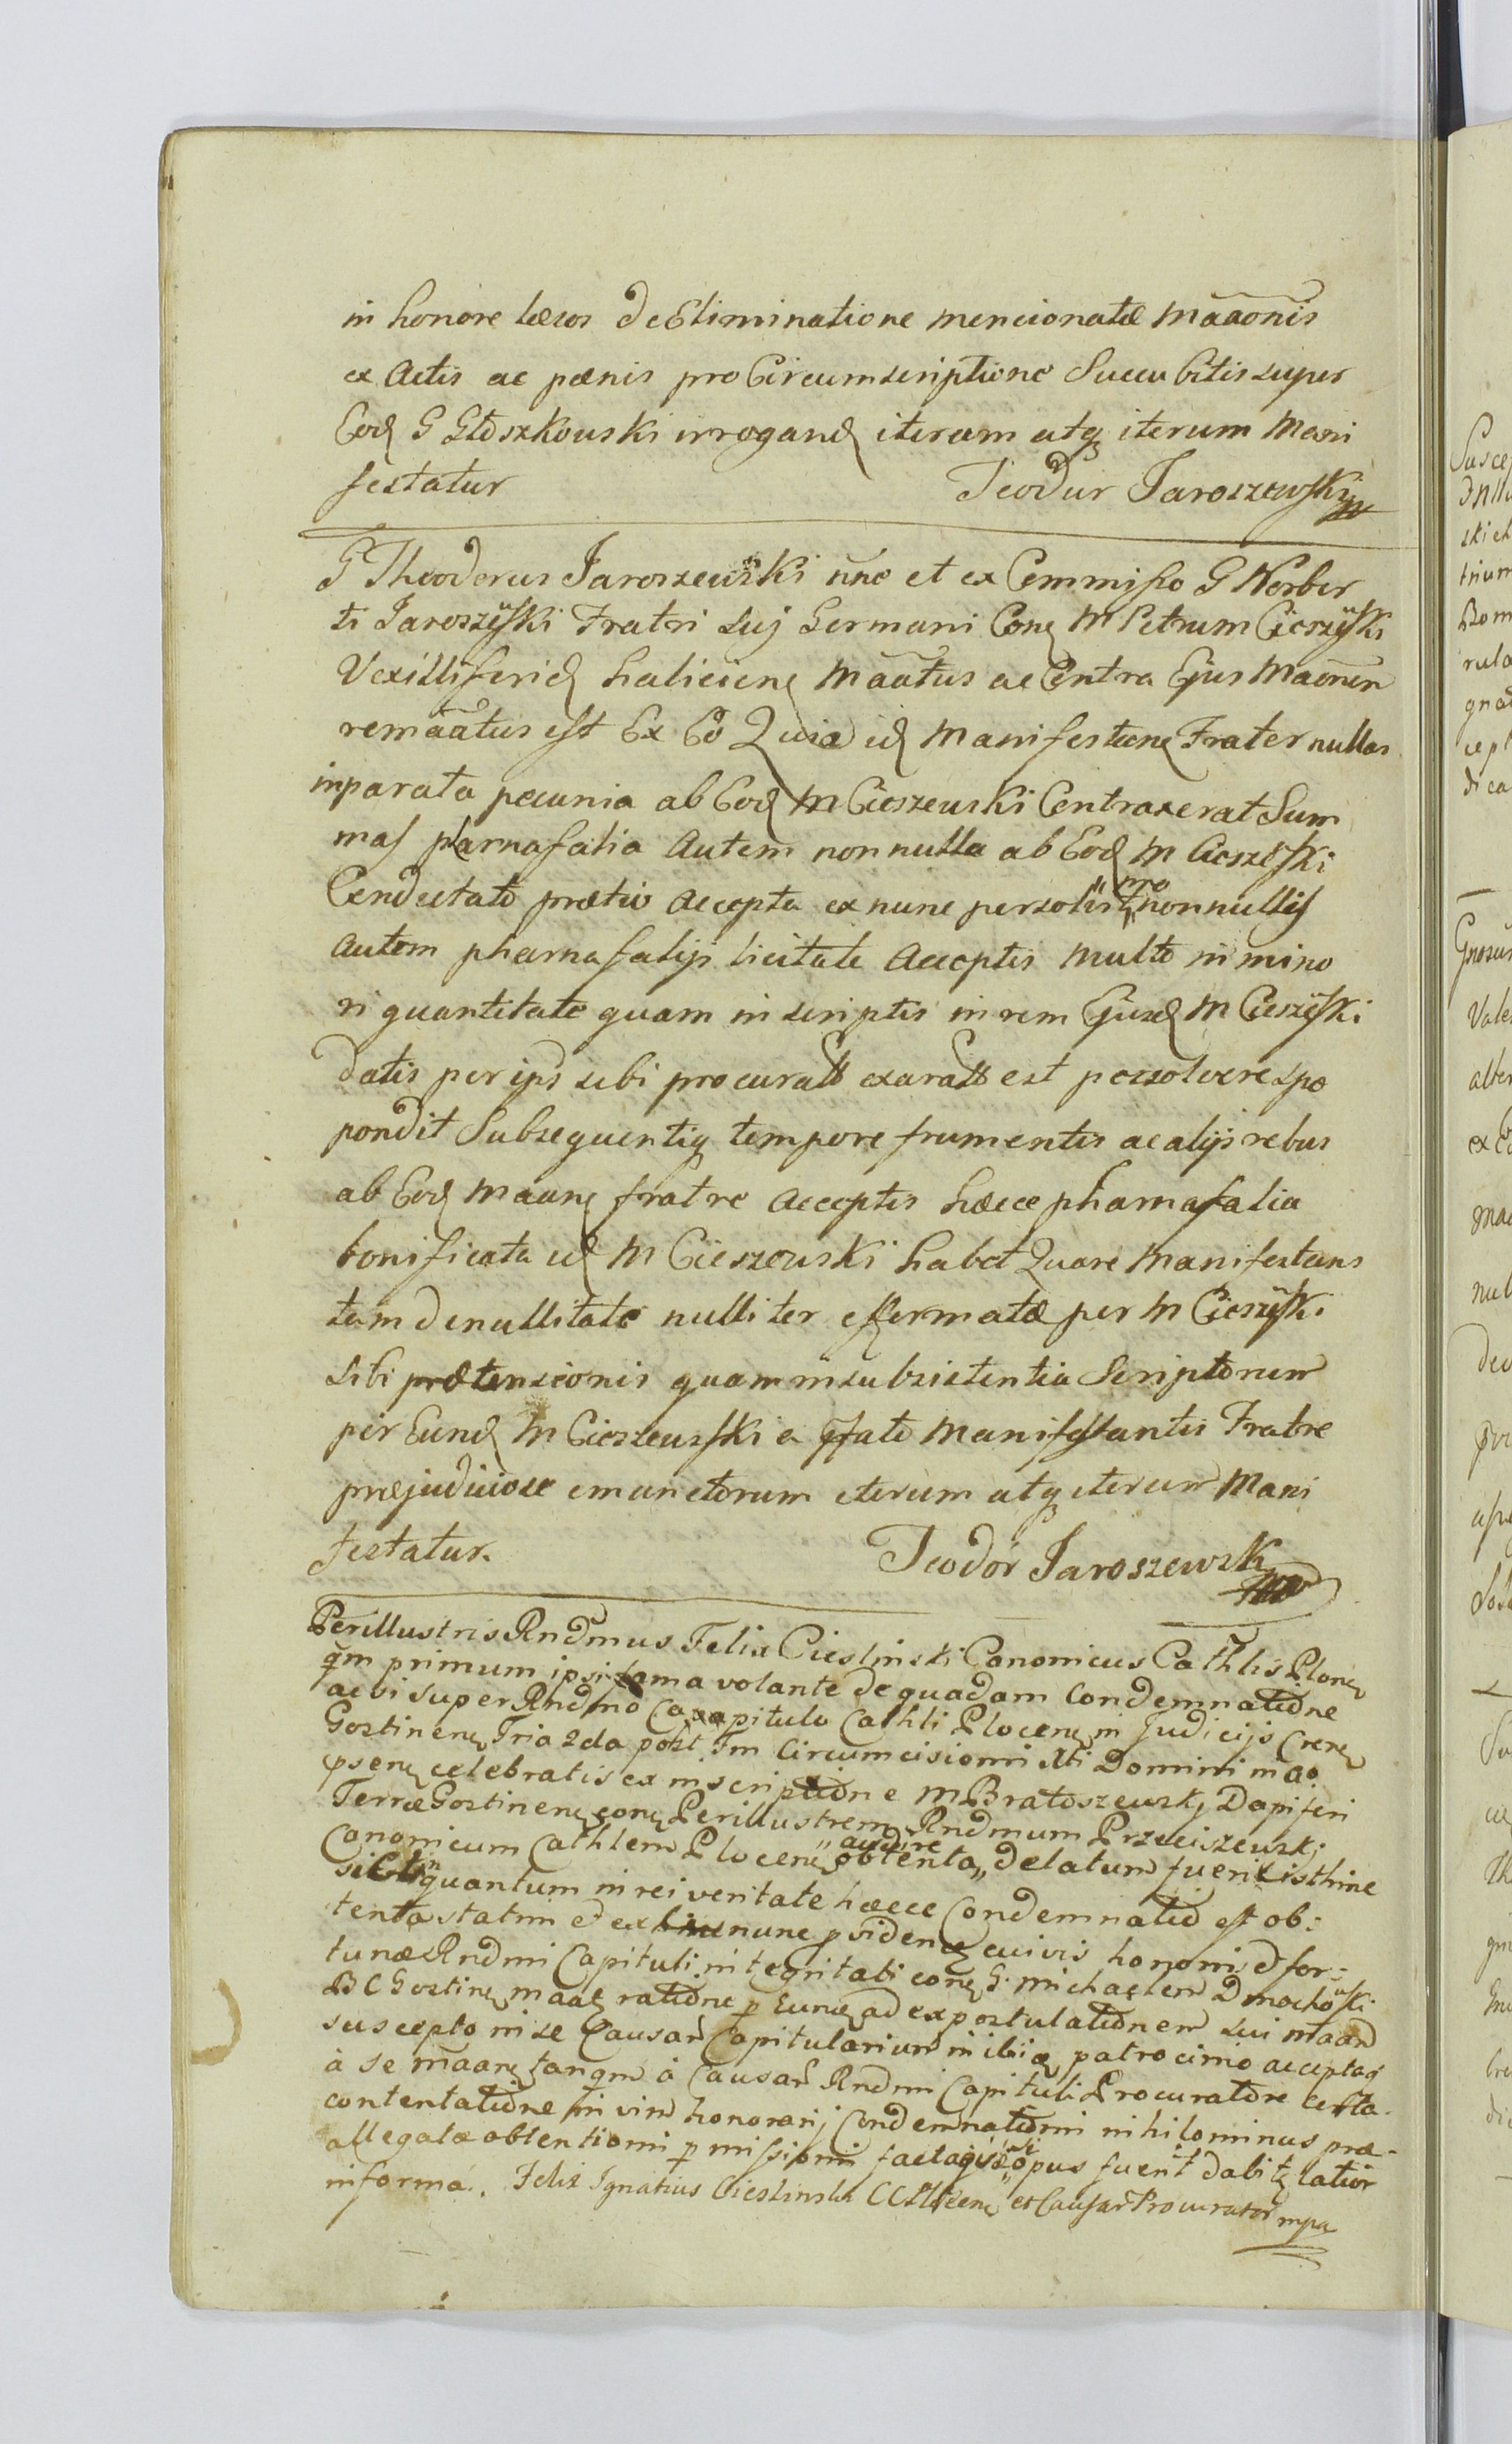 in honore læsos de Eliminatione mencionatæ Mãaonis
ex Actis ac pœnis pro Circumscriptione Succubitis super
Eod G Głoszkouski irrogand iterum atq iterum Mani
festatur Teodur Jaroszewski
G Theoderus Jaroszewski nnõ et ex Commisso G Norber
ti Jaroszewski Fratri Suj Germani Con M Petrum Cieszewski
Vexilliferid haliciens Mãatus ac Contra Ejus Maonen
remãatus est Ex Eo Quia id Manifestans Frater nullas
inparata pecunia ab Eod M Cieszewski Contraxerat Sum
mas pharnafalia Autem nonnulla ab Eod M Cieszewski
Condectato prætio Accepta ex nunc persolvit pro nonnullis
Autem pharnafalijs licitate Acceptis Multo in mino
ri quantitate quam in scriptis in rem Ejusd M Cieszewski
datis per ips sibi procurat exarat est persolvere spo
pondit Subsequentiq tempore frumentis ac alijs rebus
ab Eod Maan fratre Acceptis hæcce pharnafalia
bonificata id M Cieszewski habet Quare Manifestans
tam de nullitate nulliter efformatæ per M Cieszewski
Sibi prætensionis quam insubsistentia Scriptorum
per Eund M Cieszewski a pfato Manifestantis Fratre
præjudiciose emanctorum iterum atq iterum Mani
festatur. Teodor Jaroszewsk
Perillustris Rndmus Felix Cieslinski Canonicus Cathlis Plocen
qm primum ipsi fama volante de quadam Condemnatione
ac vi super Rndmo Capitulo Cathli Plocen in Judicijs Cren
Gostinen Fria 2da post Fm Circumcisionis Xti Domini in ao
psen celebratis ex inscriptione M Bratoszewskj Dapiferi
Terræ Gostinen con Perillustrem Rndmum Przeciszewskj
Canonicum Cathlem Plocen obtenta audire delatum fuerit isthinc
sicut in quantum in rei veritate hæcce Condemnatio est ob:
tenta statim et ex nunc pviden cuivis honori et for:
tunæ Rndmi Capituli integritati con G. Michaelem Dmochowski
BC Gostin maat ratione p Eund ad expostulationem sui maand
suscepto in se Causar Capitularium in ibiq patrocinio acceptaq
à se maan tanqm à Causar Rndmi Capituli Procuratore certa
contentatione in vim honorarij Condemnationi nihilominus præ-
allegatæ obtentioni p missioni factaq si opus fuerit dabit latior
informa. Felix Ignatius Cieslinski CC Plocen et Causar Procurator mpa